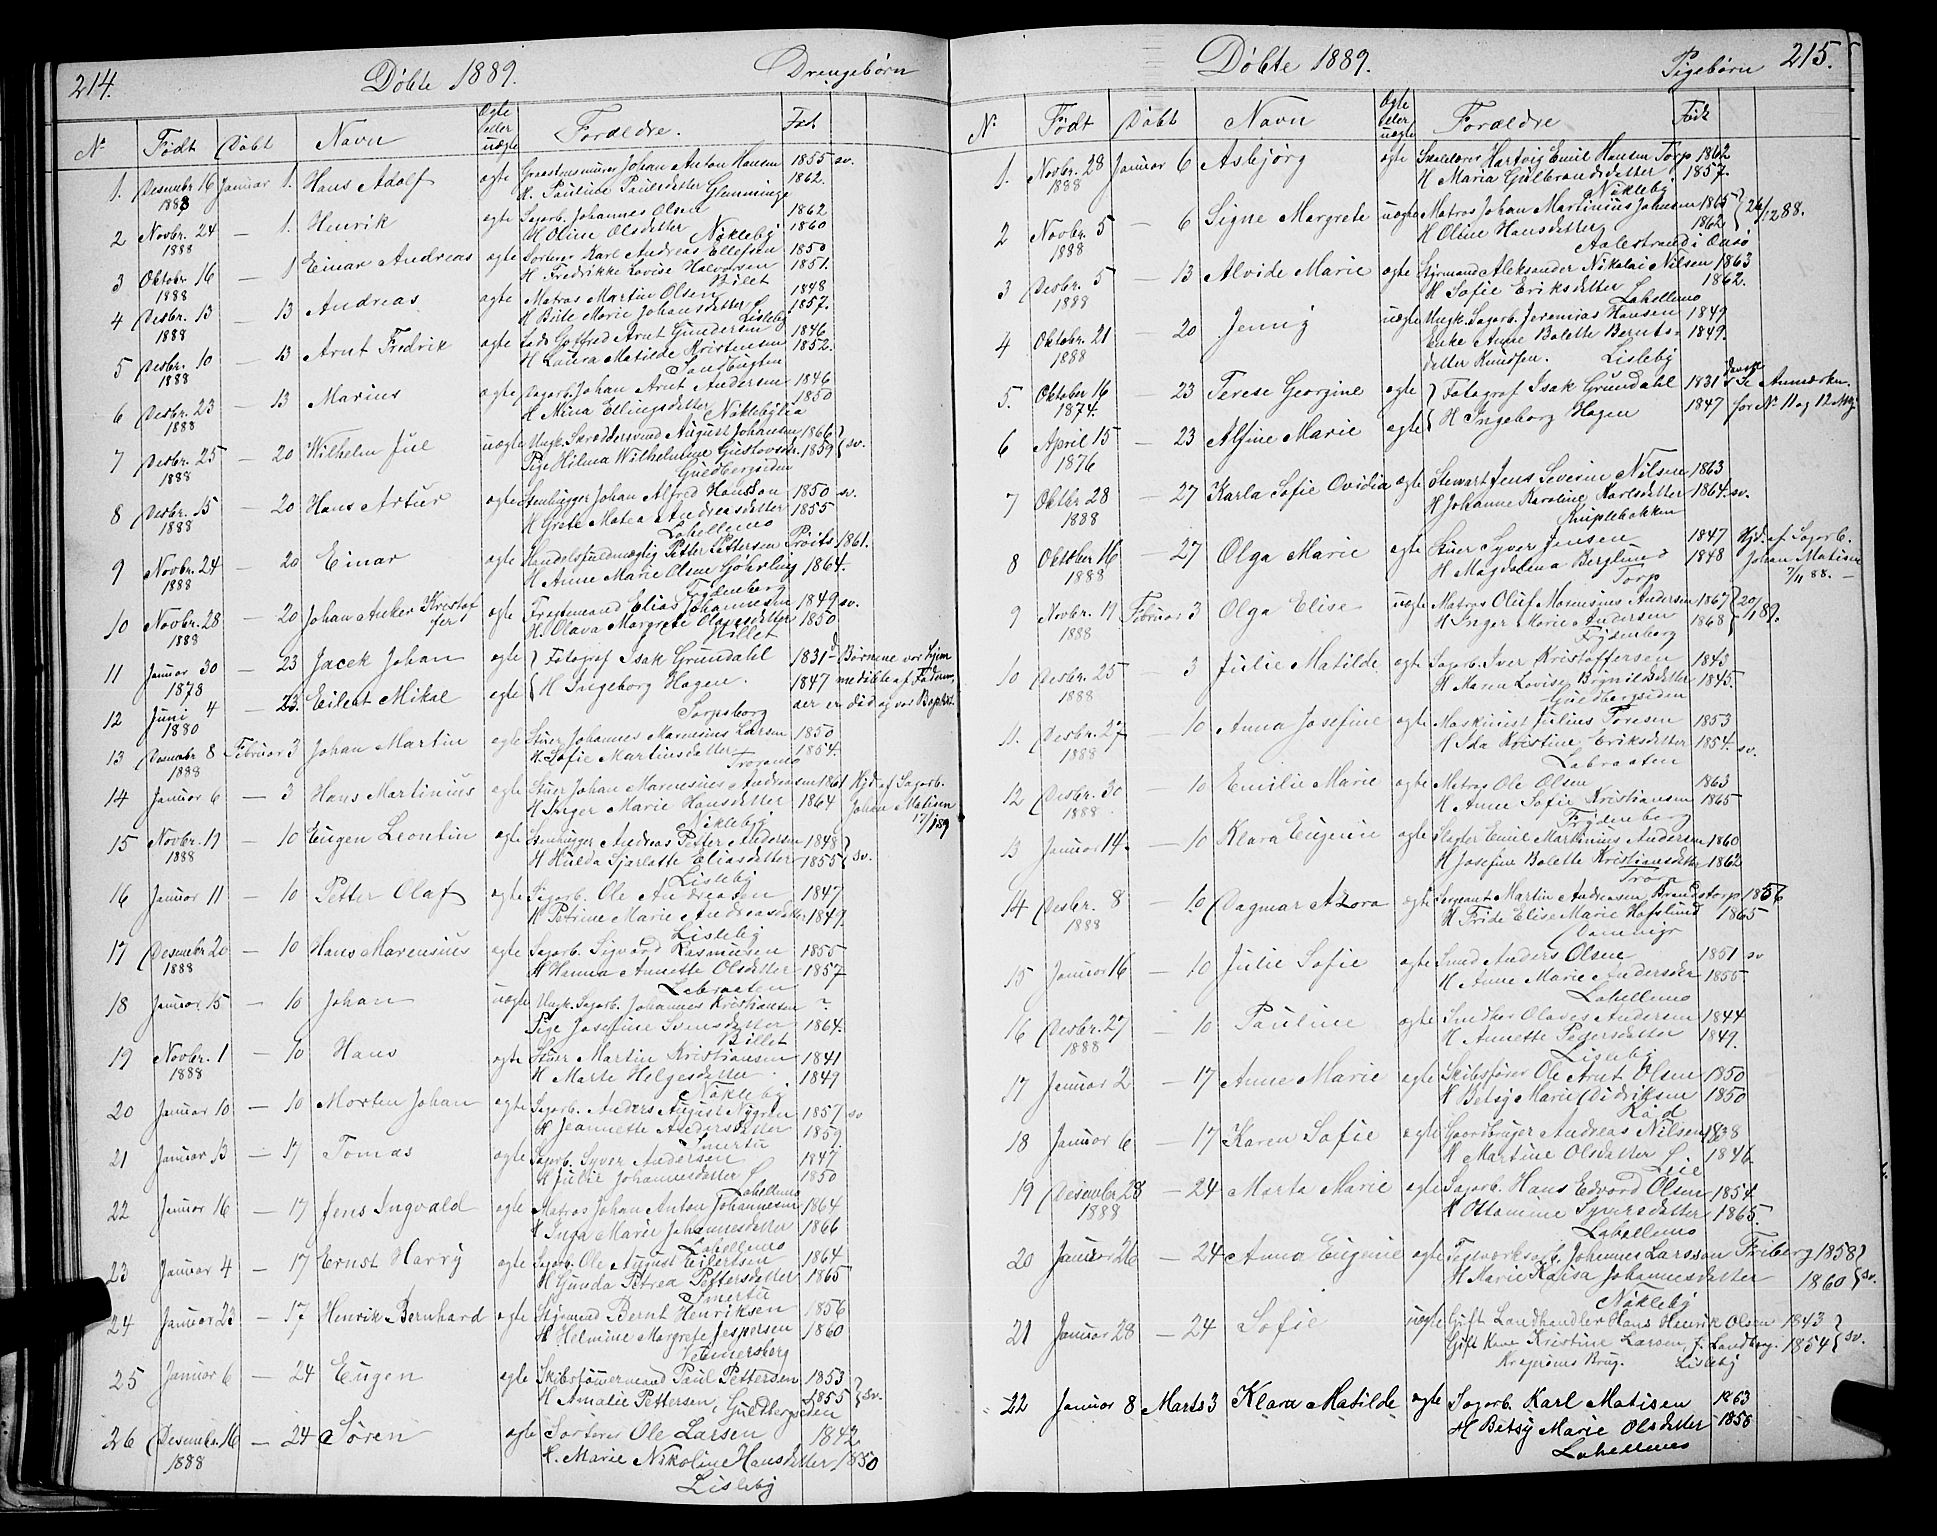 214. Døbte 1889. Drengebørn
No Født Døbt Navn Ægte eller uægte Forældre. Født.
1. Desember 16 1888 Januar 1. Hans Adolf ægte Graastensmurer Johan Anton Hansen 1855 sv.
H. Pauline Paulsdetter 1862.
Glemminge
2 Novbr. 24 1888 — 1. Henrik ægte Sagarb. Johannes Olsen 1862
H Oline Olsdetter 1860
Nøkleby
3 Oktobr. 16 1888 — 1 Einar Andreas ægte Sorterer Karl Andreas Ellefsen 1850
H Fredrikke Lovise Halvorsen 1851.
Bilet
4 Desbr. 13 1888 — 13 Andreas ægte Matros Martin Olsen 1848
H Berte Marie Johansdetter 1857.
Lisleby
5 Desbr. 10 1888 — 13 Arnt Fredrik ægte Gotfred Arnt Gundersen 1846
H Laura Matilde Kristensen 1852.
Sandbugten
6 Desbr. 23 1888 — 13 Marius ægte Dagarb. Johan Arnt Andersen 1846
H Mina Ellingsdetter 1850
Nøklebylia
7 Desbr. 25 1888 — 20 Wilhelm Jul uægte Ungk. Skræddersvend August Johansen 1866
Pige Hilma Wilhelmine Gustavsdr. 1859 } sv.
Guldbergsiden
8 Desbr. 15 1888 — 20 Hans Artur ægte Stenhugger Johan Alfred Hansson 1850 sv.
H Grete Matea Andreasdetter 1855
Lahellemo
9 Novbr. 24 1888 — 20 Einar ægte Handelsfuldmægtig Petter Pettersen Prøits 1861.
H Anne Marie Olsen Gøhrling 1864.
Frydenberg
10 Novbr. 28 1888 — 20 Johan Anker Kristoffer ægte Fyrstemand Elias Johannesen 1849 sv.
H. Olava Margrete Olavesdetter 1850
Billet
11 Januar 30 1878 — 23 Jacek Johan ægte { Fotograf Isak Grundahl 1831 Børnene var hjem
12 Juni 4 1880 — 23. Eilert Mikal ægte { H Ingeborg Hagen. 1847 medøbte af Faderen,
Sarpsborg der er død og var Baptist.
13 Desember 8 1888 Februar 3 Johan Martin ægte Stuer Johannes Marensius Larsen 1850
H. Sofie Martinsdetter 1854.
Trosemo
14 Januar 6 — 3 Hans Martinius ægte Stuer Johan Marensius Andersen 1861 Hjd. af Sagarb.
H Inger Marie Hansdetter 1864 Johan Matisen
Nøkleby 17/1 89
15 Novbr. 19 1888 — 10 Eugen Leontin ægte Stenhugger Andreas Petter Andersen 1848
H Hulda Sjarlotte Eliasdetter 1855 } sv.
Lisleby
16 Januar 11 — 10 Petter Olaf ægte Sagarb. Ole Andreasen 1847
H Petrine Marie Andreasdetter 1849.
Lisleby
17 Desember 20 1888 — 10 Hans Marensius ægte Sagarb. Sigvard Rasmussen 1855
H Hanna Annette Olsdetter 1857
Labraaten
18 Januar 15 — 10 Johan uægte Ungk. Sagarb. Johannes Kristiansen ?
Pige Josefine Svensdetter 1864.
Billet
19 Novbr. 1 1888 — 10 Hans ægte Stuer Martin Kristiansen 1841
H Marte Helgesdetter 1849
Nøkleby
20 Januar 10 — 10 Morten Johan ægte Sagarb. Anders August Nygren 1857 sv
H Jeannette Andersdetter 1859.
Smertu
21 Januar 13 — 17 Tomas ægte Sagarb. Syver Andersen 1847
H Julie Johannesdetter 1850
Lahellemo
22 Januar 16 — 17 Jens Ingvald ægte Matros Johan Anton Johannesen 1864
H Inga Marie Johannesdetter 1866
Lahellemo
23 Januar 4 — 17 Ernst Harry ægte Sagarb. Ole August Eilertsen 1864
H Gunda Petrea Pettersdetter 1865
Smertu
24 Januar 23 — 17 Henrik Bernhard ægte Styrmand Bernt Henriksen 1856
H Helmine Margrete Jespersen 1860
25 Januar 6 — 24 Eugen ægte Skibstømmermand Paul Pettersen 1853
H Amalie Pettersen, Guldbergsiden 1855 } sv.
26 Desember 16 1888 — 24 Søren ægte Sorterer Ole Larsen 1842
H. Marie Nikoline Hansdetter 1850
Lisleby
Døbte 1889. Pigebørn 215.
No Født Døbt Navn Ægte eller uægte Forældre Født
1. Novbr. 28 1888 Januar 6 Asbjørg ægte Skolelærer Hartvig Emil Hansen Torp 1862
H Maria Gulbrandsdetter 1857.
Nøkleby
2 Novbr. 5 1888 — 6 Signe Margrete uægte Matros Johan Martinius Johansen 1865
H Oline Hansdetter 1862 } 26/12 88.
Aalestrand i Onsø
3 Desbr. 5 1888 — 13 Alvide Marie ægte Styrmand Aleksander Nikolai Nilsen 1863
H Sofie Eriksdetter 1862.
Lahellemo
4 Oktobr. 21 1888 — 20 Jenny uægte Ungk. Sagarb. Jeremias Hansen 1849
Enke Anne Bolette Berntsdetter Knudsen. 1849.
Lisleby
5. Oktober 16 1874. — 23 Terese Georgine ægte } Fotograf Isak Grundahl 1831 dansk Se Anmærkn.
6 April 15 1876 — 23 Alfine Marie ægte { H Ingeborg Hagen 1847 for No 11 og 12 Mkj
7 Oktbr. 28 1888 — 27 Karla Sofie Ovidia ægte Stewart Jens Severin Nilsen 1863
H Johanne Karoline Karlsdetter 1864. sv.
Kniplebakken
8 Oktober 16 1888 — 27 Olga Marie ægte Stuer Syver Jensen 1847 Hjd. af Sagarb.
H Magdalena Berglund 1848 Johan Matisen
Torp 7/11 88. —
9 Novbr. 19 1888 Februar 3 Olga Elise uægte Matros Oluf Marensius Andersen 1867
H Inger Marie Andersen 1868 } 20/1 89.
Frydenberg
10 Desbr. 25 1888 — 3 Julie Matilde ægte Sagarb. Iver Kristoffersen 1843
H Maren Lovise Brynildsdetter 1845.
Guldbergsiden
11. Desbr. 27 1888 — 10 Anna Josefine ægte Maskinist Julius Toresen 1853
H Ida Kristine Eriksdetter 1854. sv.
Labraaten
12 Desbr. 30 1888. — 10 Emilie Marie ægte Matros Ole Olsen 1863
H Anne Sofie Kristiansen 1865
Frydenberg
13 Januar 14. — 10 Klara Eugenie ægte Slagter Emil Martinius Andersen 1860
H Josefine Bolette Kristiansdetter 1862
14 Desbr. 8 1888 — 10 Dagmar Alora ægte Sergeant Martin Andreasen Brandstorp 1856
H Fride Elise Marie Hafslund 1865
15 Januar 16 — 10 Julie Sofie ægte Smed Anders Olsen 1851 sv
H Anne Marie Andersdr. 1855.
Lahellemo
16 Desbr. 27 1888 — 10 Pauline ægte Snedker Olaves Andersen 1844
H Annette Pedersdetter 1849.
Lisleby
17 Januar 2 — 17 Anne Marie ægte Skibsfører Ole Arnt Olsen 1850
H Betsy Marie Didriksen 1850
Rød
18 Januar 6 — 17 Karen Sofie ægte Gaardbruger Andreas Nilsen 1838
H Martine Olsdetter 1846
Leie
19 Desember 28 1888 — 24 Marta Marie ægte Sagarb. Hans Edvard Olsen 1854.
H Ottomine Syversdetter 1865.
Lahellemo
20 Januar 26 — 24 Anna Eugenie ægte Teglværksarb. Johannes Larsson Friberg 1858
H Marie Kaisa Johannesdetter 1860 } sv.
Nøkleby
21 Januar 28 — 24 Sofie uægte Gift Landhandler Hans Henrik Olsen 1843
Gift Kone Kristine Larsen, f. Landberg. 1854 } sv.
Krapfoss Brug. Lisleby
22 Januar 8 Marts 3 Klara Matilde ægte Sagarb. Karl Matisen 1863
H Betsy Marie Olsdetter 1856
Lahellemo